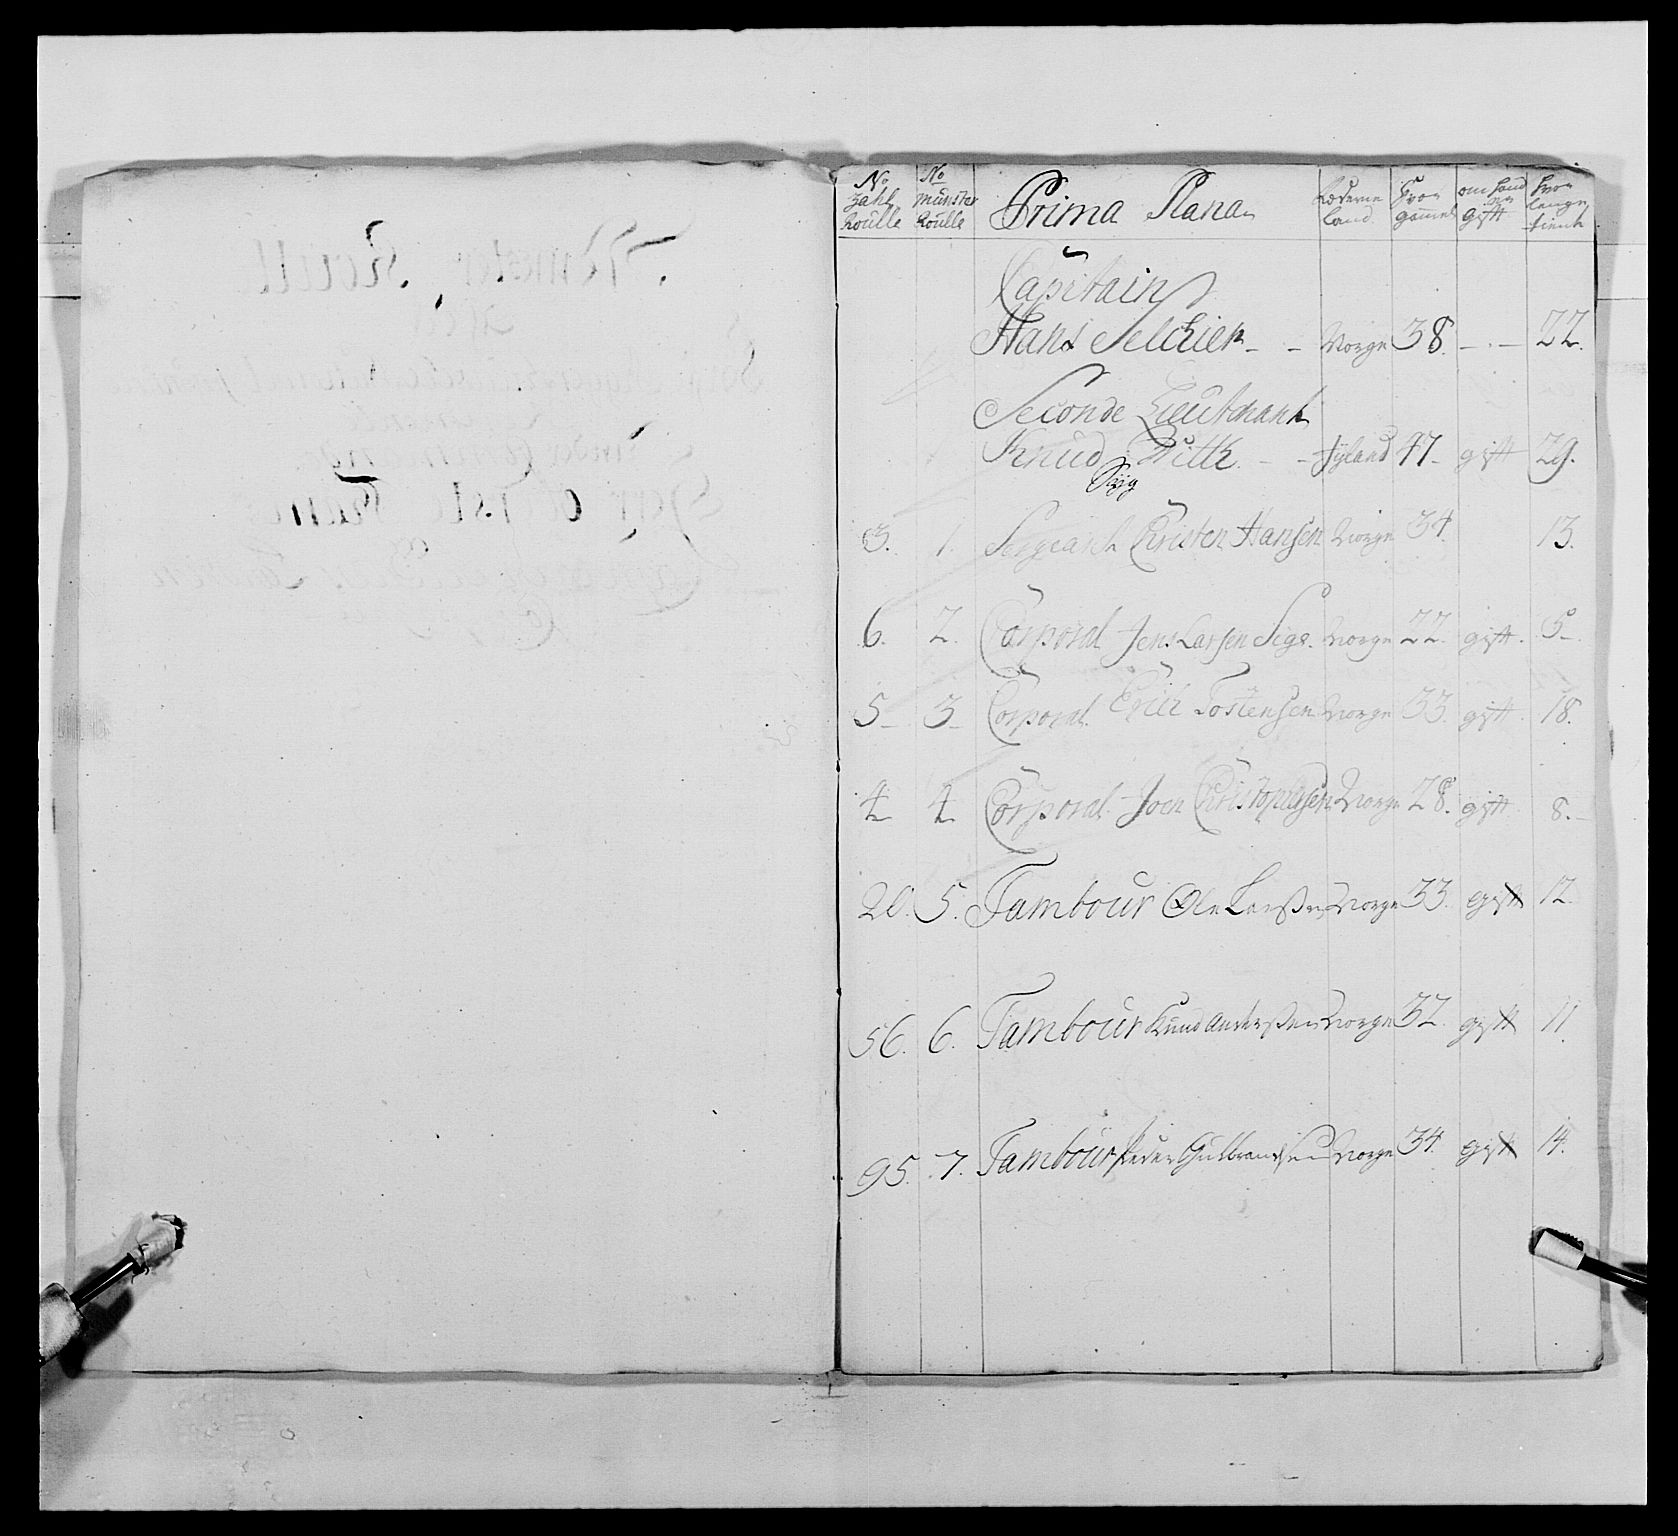 No Zahl Roulle | No Munster Roulle | Prima Plana | Fæderne land | Hvor gammel | om hand er gift | hvor lenge tient
Capitain
Hans Selchier - - Norge 38. - . - 22.
Seconde Lieutenant
Knud Witth. - - Jyland 47 - gift 29.
Syg
3. 1. Sergeant Christen Hansen Norge 34. 13.
6. 2. Corporal Jens Larsen Norge 22. gift. 5-
5- 3- Corporal Erich Tostensen Norge 33. gift 18.
4 4 Corporal Joen Christophersen Norge 28. gift 8.-
20. 5. Tambour Ole Larssen Norge 33. gift 12.
56. 6. Tambour Knud Anderssen Norge 32. gift 11.
95. 7. Tambour Peder Gulbrandsen Norge 34. gift 14.